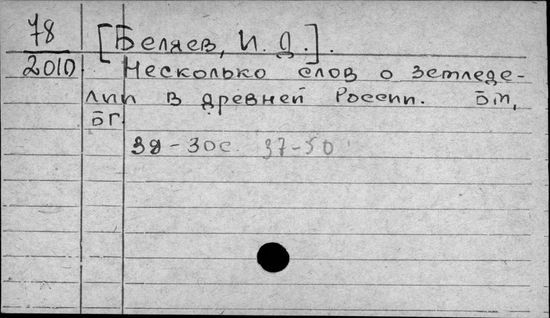 78
[Беляев, И. Д.].
2010
Несколько слов о земледе-
лии в древней России. Б.м,
Б г.
38-30с. 37-50